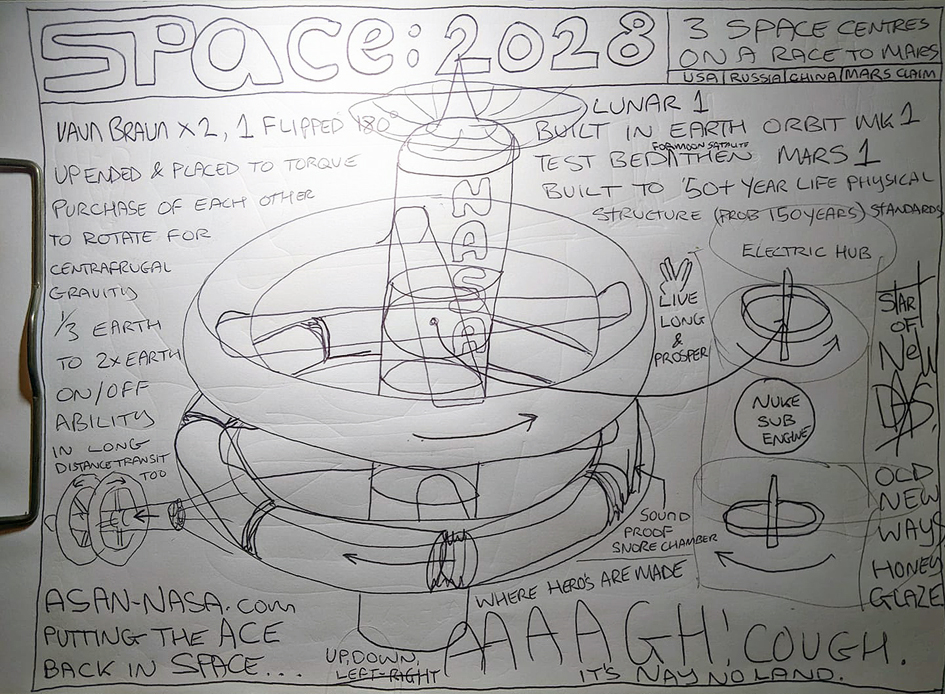 SPACE: 2028
3 SPACE CENTRES
ON A RACE TO MARS
USA | RUSSIA | CHINA | MARS CLAIM
VAUN BRAUN x 2, 1 FLIPPED 180°
UPENDED & PLACED TO TORQUE
PURCHASE OF EACH OTHER
TO ROTATE FOR
CENTRAFRUGAL
GRAVITY
1/3 EARTH
TO 2x EARTH
ON/OFF
ABILITY
IN LONG
DISTANCE TRANSIT
TOO
LUNAR 1
BUILT IN EARTH ORBIT MK 1
FOR MOON SATALITE
TEST BED THEN MARS 1
BUILT TO '50+ YEAR LIFE PHYSICAL
STRUCTURE (PROB 150 YEARS) STANDARDS
NASA
ELECTRIC HUB
LIVE
LONG
&
PROSPER
NUKE
SUB
ENGINE
START
OF
NEW
OLD
NEW
WAYS
HONEY
GLAZE
SOUND
PROOF
SNORE CHAMBER
WHERE HERO'S ARE MADE
ASAN-NASA.com
PUTTING THE ACE
BACK IN SPACE...
UP, DOWN,
LEFT-RIGHT
AAAAGH! COUGH.
IT'S NAY NO LAND.